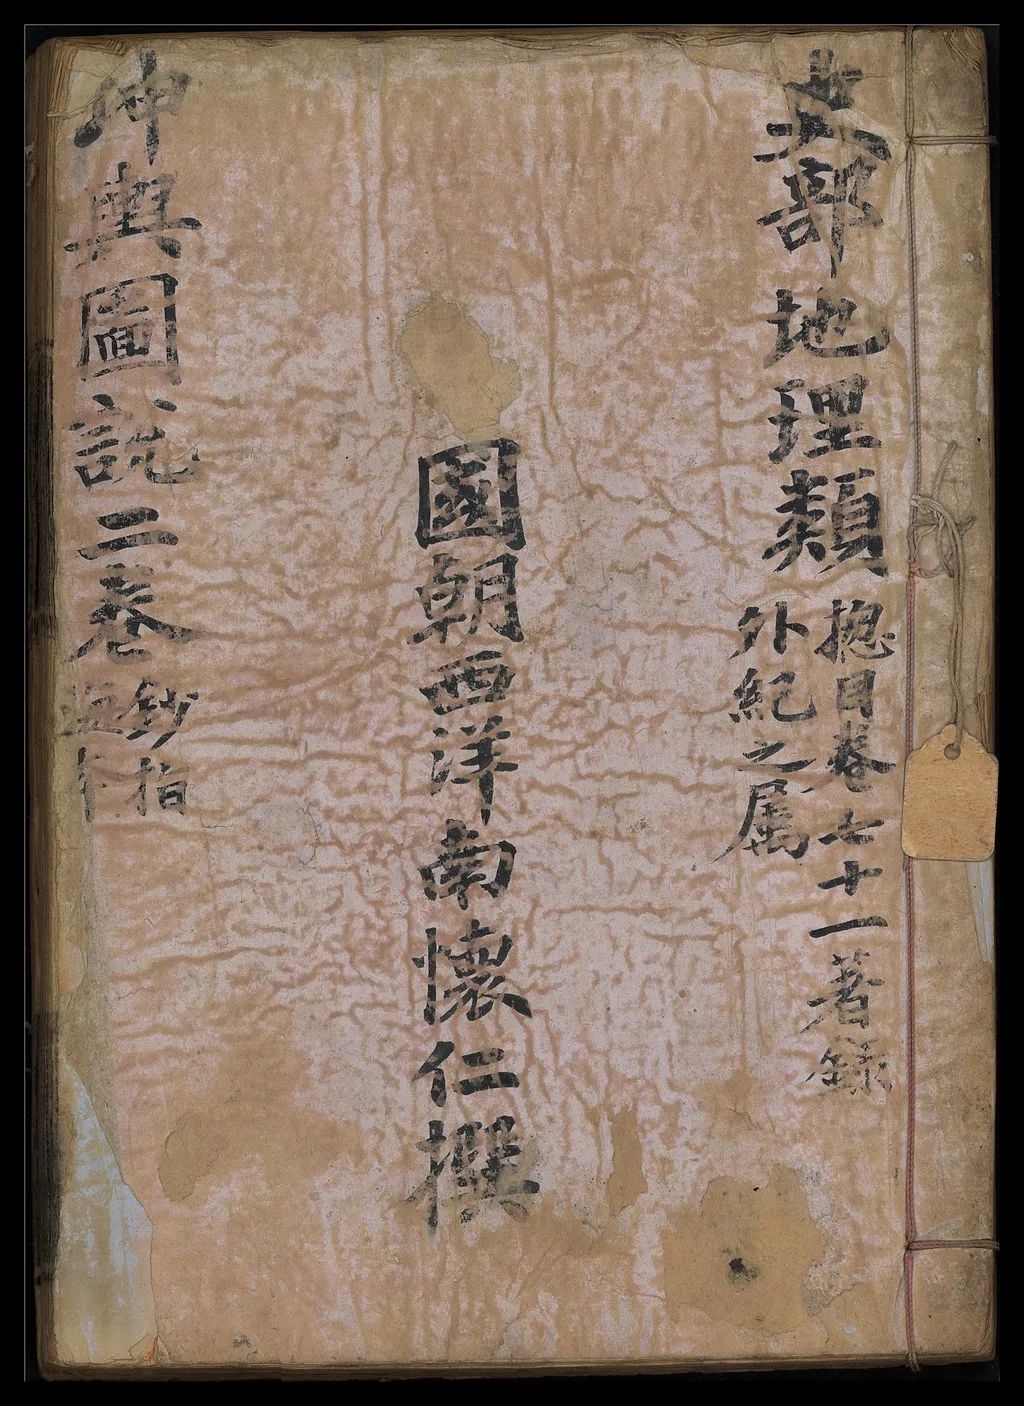 史部地理類
摠目卷七十一著錄
外紀之屬
國朝西洋南懷仁撰
坤輿圖說二卷
鈔指